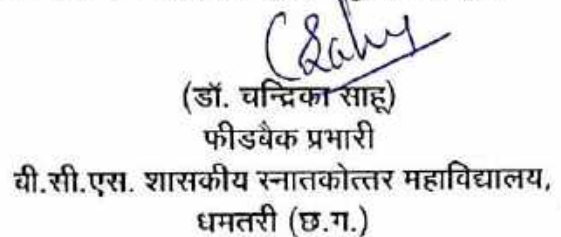 (डॉ. चन्द्रिका साहू)
फीडबैक प्रभारी
बी.सी.एस. शासकीय स्नातकोत्तर महाविद्यालय,
धमतरी (छ.ग.)